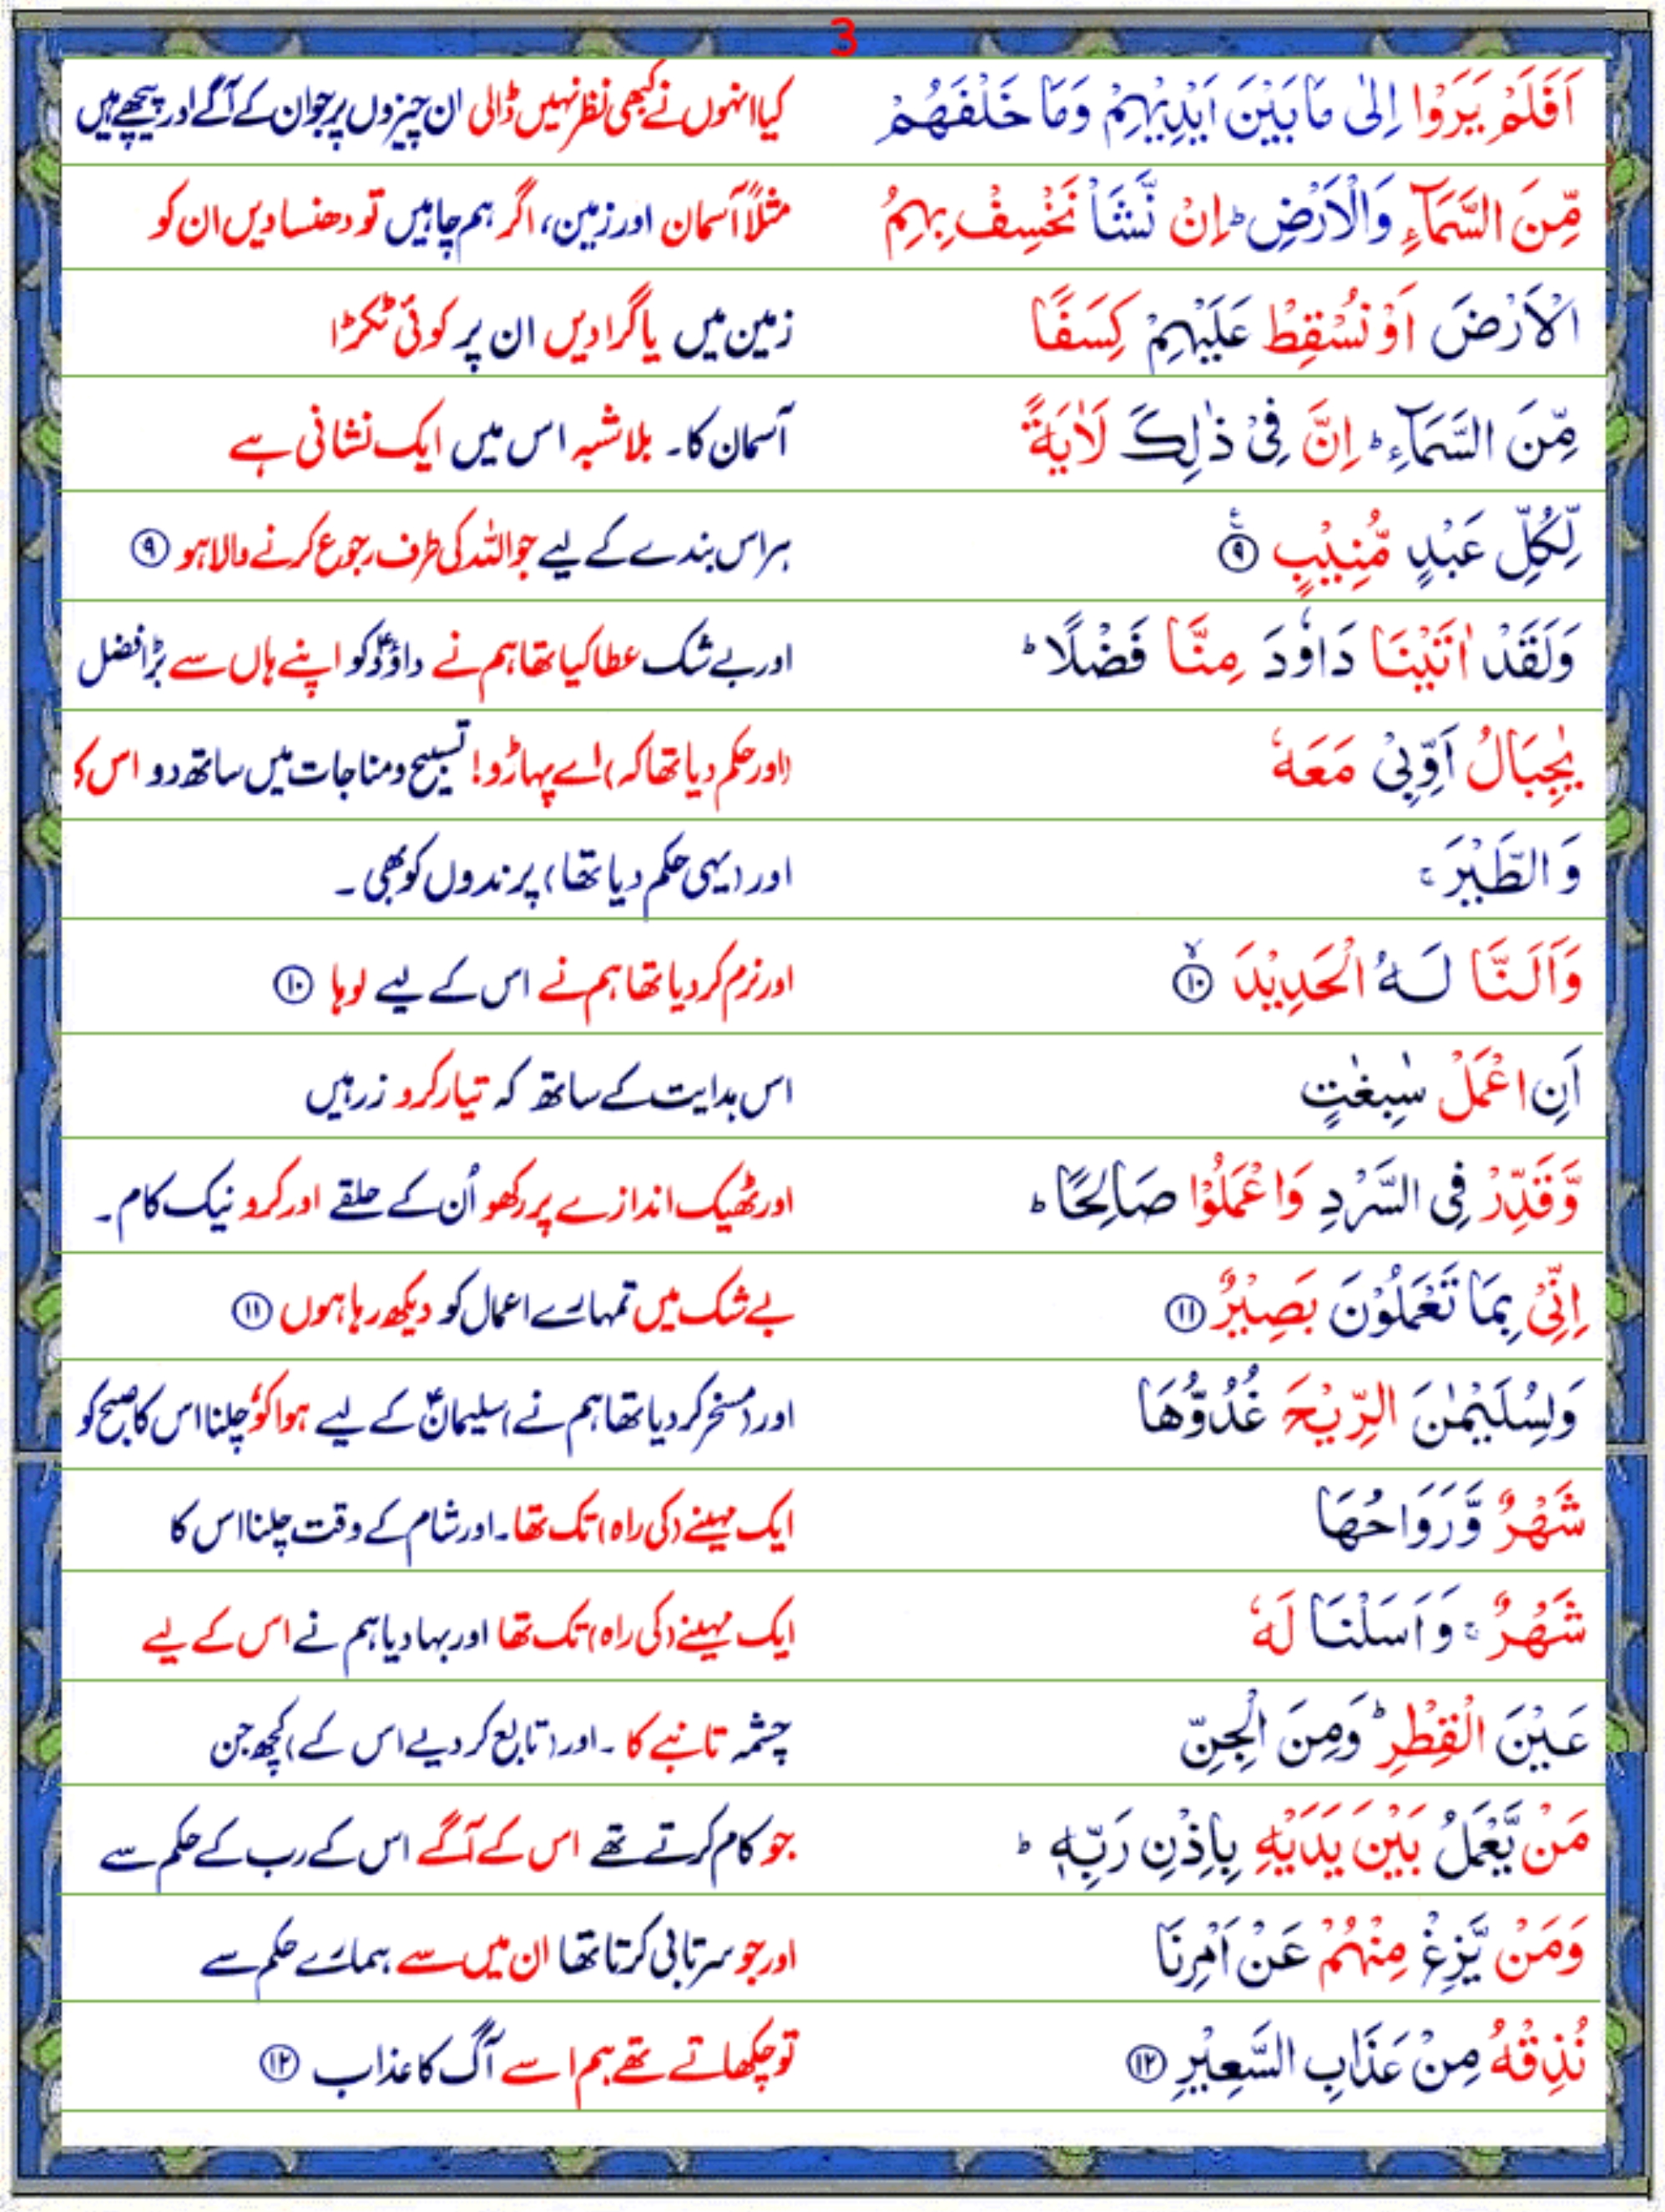 3
اَفَلَمْ يَرَوْا اِلٰى مَا بَيْنَ اَيْدِيْهِمْ وَمَا خَلْفَهُمْ کیا انہوں نے کبھی نظر نہیں ڈالی ان چیزوں پر جو ان کے آگے اور پیچھے ہیں
مِّنَ السَّمَآءِ وَالْاَرْضِ ؕ اِنْ نَّشَاْ نَخْسِفْ بِهِمُ مثلاً آسمان اور زمین، اگر ہم چاہیں تو دھنسا دیں ان کو
الْاَرْضَ اَوْ نُسْقِطْ عَلَيْهِمْ كِسَفًا زمین میں یا گرا دیں ان پر کوئی ٹکڑا
مِّنَ السَّمَآءِ ؕ اِنَّ فِىْ ذٰلِكَ لَاٰيَةً آسمان کا۔ بلاشبہ اس میں ایک نشانی ہے
لِّكُلِّ عَبْدٍ مُّنِيْبٍ ۹ ہر اس بندے کے لیے جو اللہ کی طرف رجوع کرنے والا ہو ۹
وَلَقَدْ اٰتَيْنَا دَاوٗدَ مِنَّا فَضْلًا ؕ اور بے شک عطا کیا تھا ہم نے داؤدؑ کو اپنے ہاں سے بڑا فضل
يٰجِبَالُ اَوِّبِىْ مَعَهٗ (اور حکم دیا تھا کہ) اے پہاڑو! تسبیح و مناجات میں ساتھ دو اس کا
وَالطَّيْرَ ۚ اور (یہی حکم دیا تھا) پرندوں کو بھی ۔
وَاَلَنَّا لَهُ الْحَدِيْدَ ۱۰ اور نرم کر دیا تھا ہم نے اس کے لیے لوہا ۱۰
اَنِ اعْمَلْ سٰبِغٰتٍ اس ہدایت کے ساتھ کہ تیار کرو زرہیں
وَّقَدِّرْ فِى السَّرْدِ وَاعْمَلُوْا صَالِحًا ؕ اور ٹھیک اندازے پر رکھو اُن کے حلقے اور کرو نیک کام۔
اِنِّىْ بِمَا تَعْمَلُوْنَ بَصِيْرٌ ۱۱ بے شک میں تمہارے اعمال کو دیکھ رہا ہوں ۱۱
وَلِسُلَيْمٰنَ الرِّيْحَ غُدُوُّهَا اور (مسخر کر دیا تھا ہم نے) سلیمانؑ کے لیے ہوا کو، چلنا اس کا صبح کو
شَهْرٌ وَّرَوَاحُهَا ایک مہینے (کی راہ) تک تھا۔ اور شام کے وقت چلنا اس کا
شَهْرٌ ۚ وَاَسَلْنَا لَهٗ ایک مہینے (کی راہ) تک تھا اور بہا دیا ہم نے اس کے لیے
عَيْنَ الْقِطْرِ ؕ وَمِنَ الْجِنِّ چشمہ تانبے کا ۔ اور (تابع کر دیے اس کے) کچھ جن
مَنْ يَّعْمَلُ بَيْنَ يَدَيْهِ بِاِذْنِ رَبِّهٖ ؕ جو کام کرتے تھے اس کے آگے اس کے رب کے حکم سے
وَمَنْ يَّزِغْ مِنْهُمْ عَنْ اَمْرِنَا اور جو سرتابی کرتا تھا ان میں سے ہمارے حکم سے
نُذِقْهُ مِنْ عَذَابِ السَّعِيْرِ ۱۲ تو چکھاتے تھے ہم اسے آگ کا عذاب ۱۲